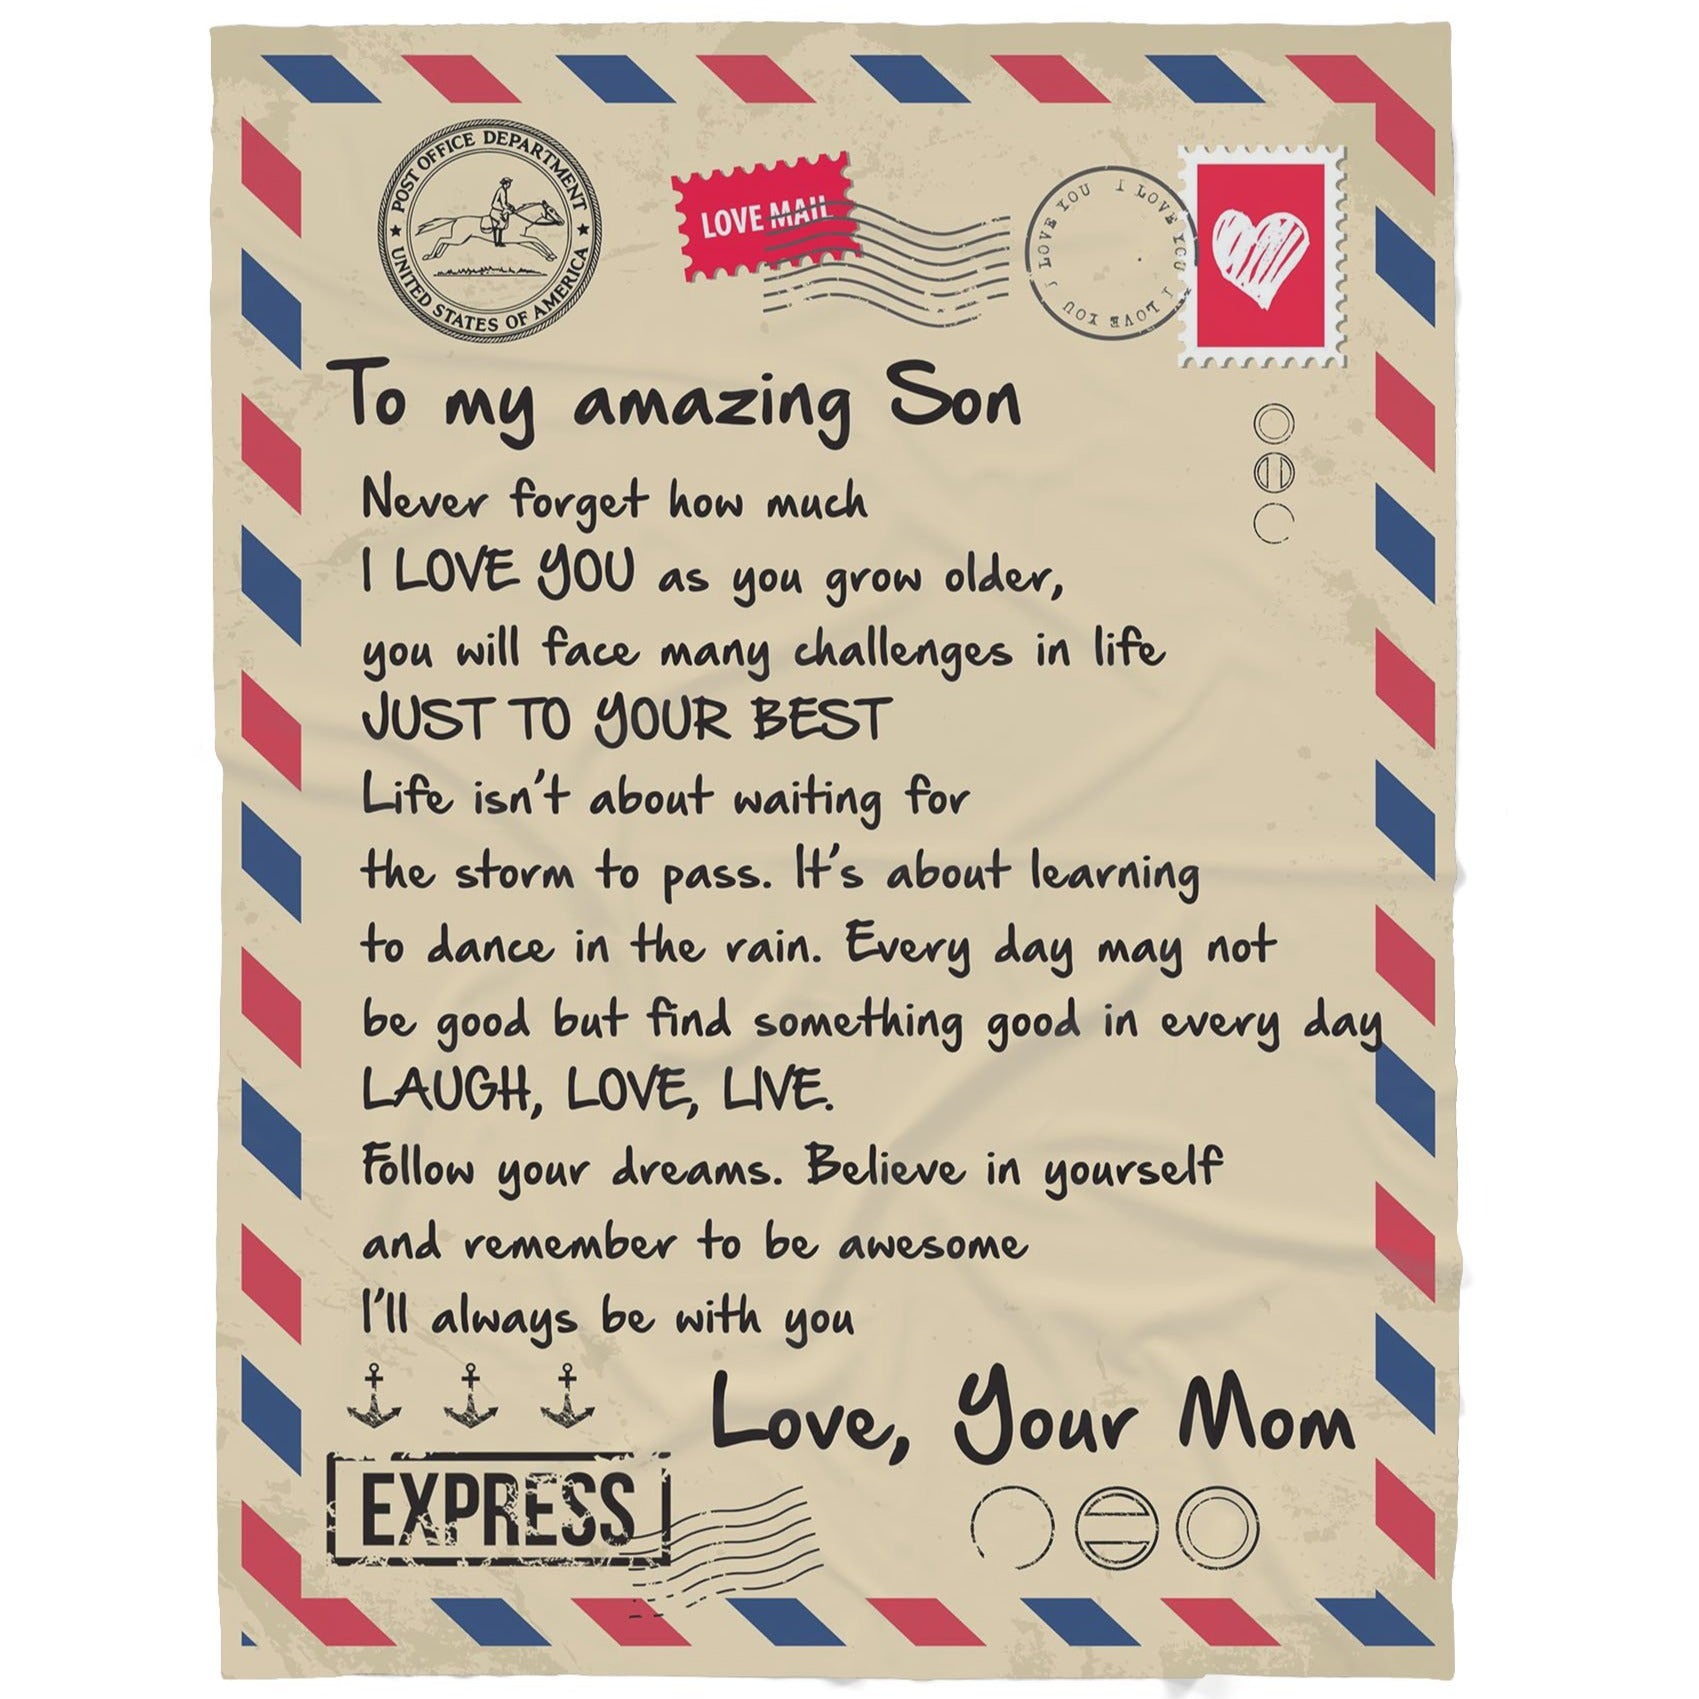 POST OFFICE DEPARTMENT
UNITED STATES OF AMERICA
LOVE MAIL
I LOVE YOU I LOVE YOU I LOVE YOU I LOVE YOU
To my amazing Son
Never forget how much
I LOVE YOU as you grow older,
you will face many challenges in life
JUST TO YOUR BEST
Life isn't about waiting for
the storm to pass. It's about learning
to dance in the rain. Every day may not
be good but find something good in every day
LAUGH, LOVE, LIVE.
Follow your dreams. Believe in yourself
and remember to be awesome
I'll always be with you
Love, Your Mom
EXPRESS